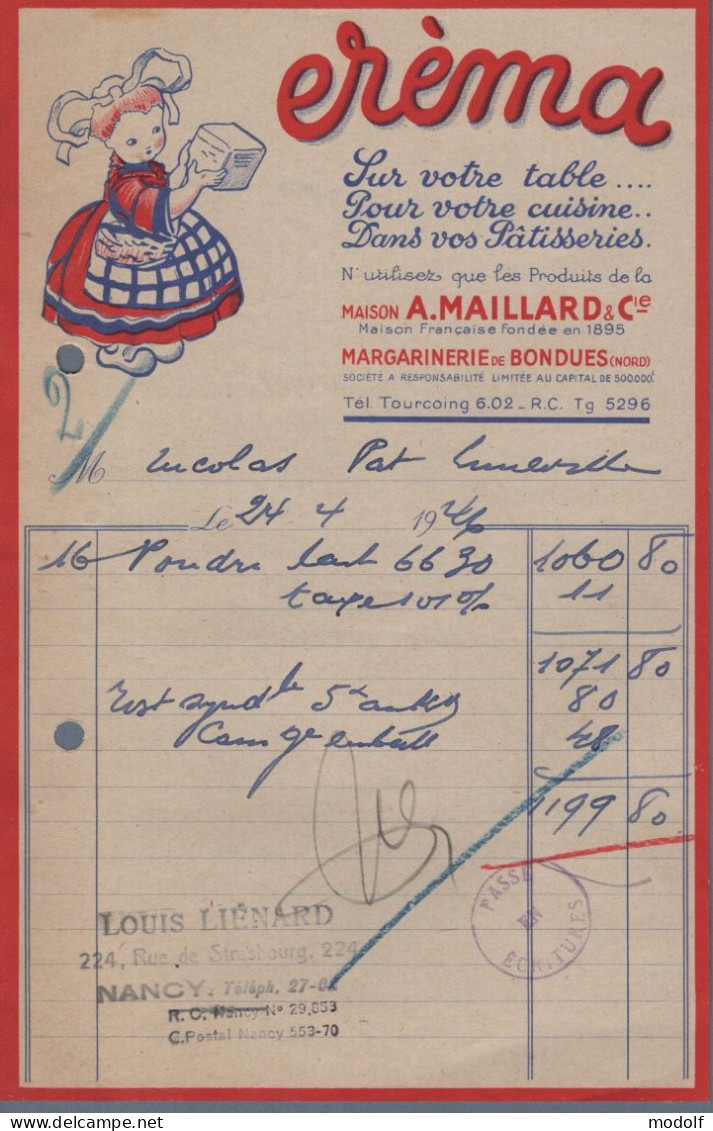 erèma
Sur votre table....
Pour votre cuisine..
Dans vos Pâtisseries.
N'utilisez que les Produits de la
MAISON A.MAILLARD & Cie
Maison Française Fondée en 1895
MARGARINERIE DE BONDUES (NORD)
SOCIÉTÉ A RESPONSABILITÉ LIMITÉE AU CAPITAL DE 500.000f
Tél. Tourcoing 6.02 _ R.C. Tg 5296
2
M Nicolas Pat Luneville
Le 24 4 1946
16 Poudre lact 66 30 1060 80
taxe 1 01 % 11
1071 80
80
emball 48
1199 80
PASSÉ
EN
ÉCRITURES
LOUIS LIÉNARD
224, Rue de Strasbourg, 224
NANCY. Téléph. 27-02
R. C. Nancy N° 29,853
C. Postal Nancy 553-70
modolf